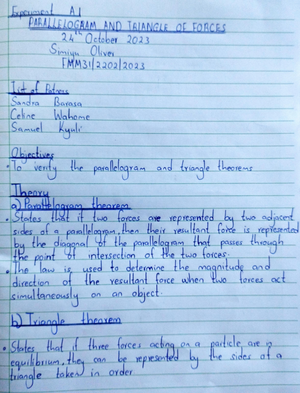 Experiment A1
PARALLELOGRAM AND TRIANGLE OF FORCES
24th October 2023
Simiyu Oliver
FMM31/2202/2023
List of Partners
Sandra Barasa
Celine Wahome
Samuel Kyuli
Objectives
• To verify the parallelogram and triangle theorems
Theory
a) Parallelogram theorem
• States that if two forces are represented by two adjacent
sides of a parallelogram, then their resultant force is represented
by the diagonal of the parallelogram that passes through
the point of intersection of the two forces.
• The law is used to determine the magnitude and
direction of the resultant force when two forces act
simultaneously on an object.
b) Triangle theorem
• States that if three forces acting on a particle are in
equilibrium, they can be represented by the sides of a
triangle taken in order